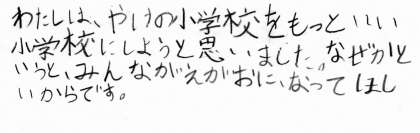 わたしは、やけの小学校をもっといい
小学校にしようと思いました。なぜかと
いうと、みんながえがおに、なってほし
いからです。